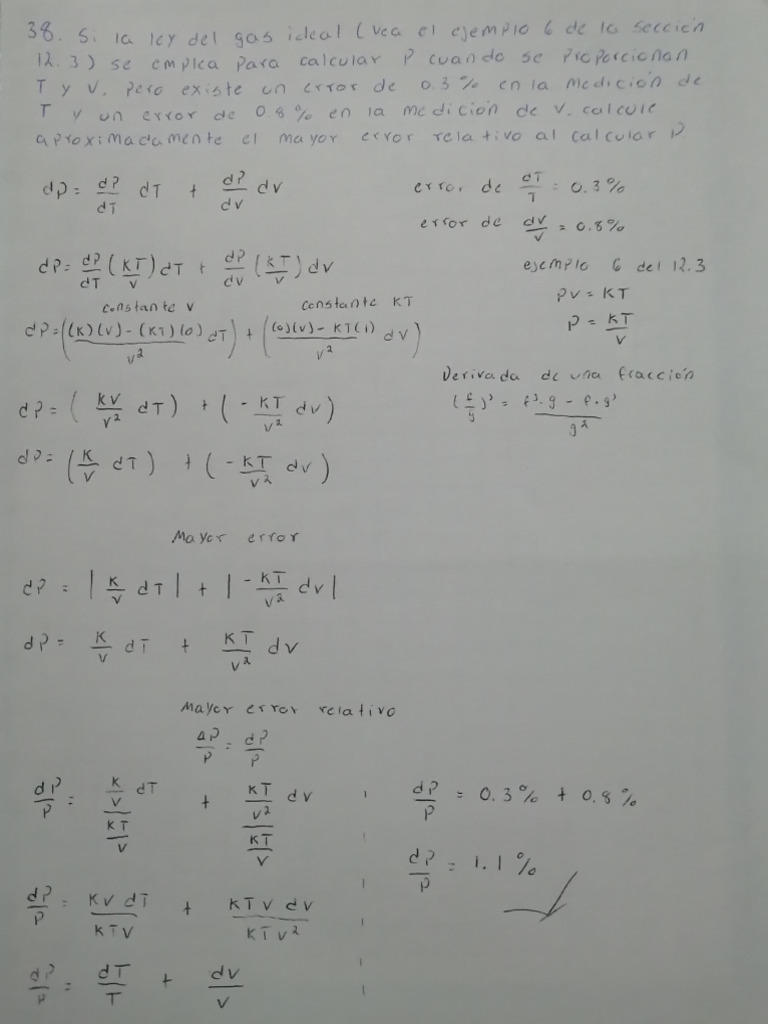 38. Si la ley del gas ideal (vea el ejemplo 6 de la sección
12.3) se emplea para calcular P cuando se proporcionan
T y V. Pero existe un error de 0.3% en la medición de
T y un error de 0.8% en la medición de V. calcule
aproximadamente el mayor error relativo al calcular P
dP = dP/dT dT + dP/dv dv
error de dT/T = 0.3%
error de dv/v = 0.8%
dP = dP/dT (KT/v) dT + dP/dv (KT/v) dv
ejemplo 6 del 12.3
Pv = KT
P = KT/v
constante v
constante KT
dP = ((K)(v) - (KT)(0)/v² dT) + ((0)(v) - KT(1)/v² dv)
Derivada de una fracción
(f/g)' = f'·g - f·g'/g²
dP = (Kv/v² dT) + (- KT/v² dv)
dP = (K/v dT) + (- KT/v² dv)
Mayor error
dP = |K/v dT| + |- KT/v² dv|
dP = K/v dT + KT/v² dv
Mayor error relativo
ΔP/P = dP/P
dP/P = K/v dT/KT/v + KT/v² dv/KT/v
dP/P = Kv dT/KTv + KTv dv/KTv²
dP/P = dT/T + dv/v
dP/P = 0.3% + 0.8%
dP/P = 1.1%